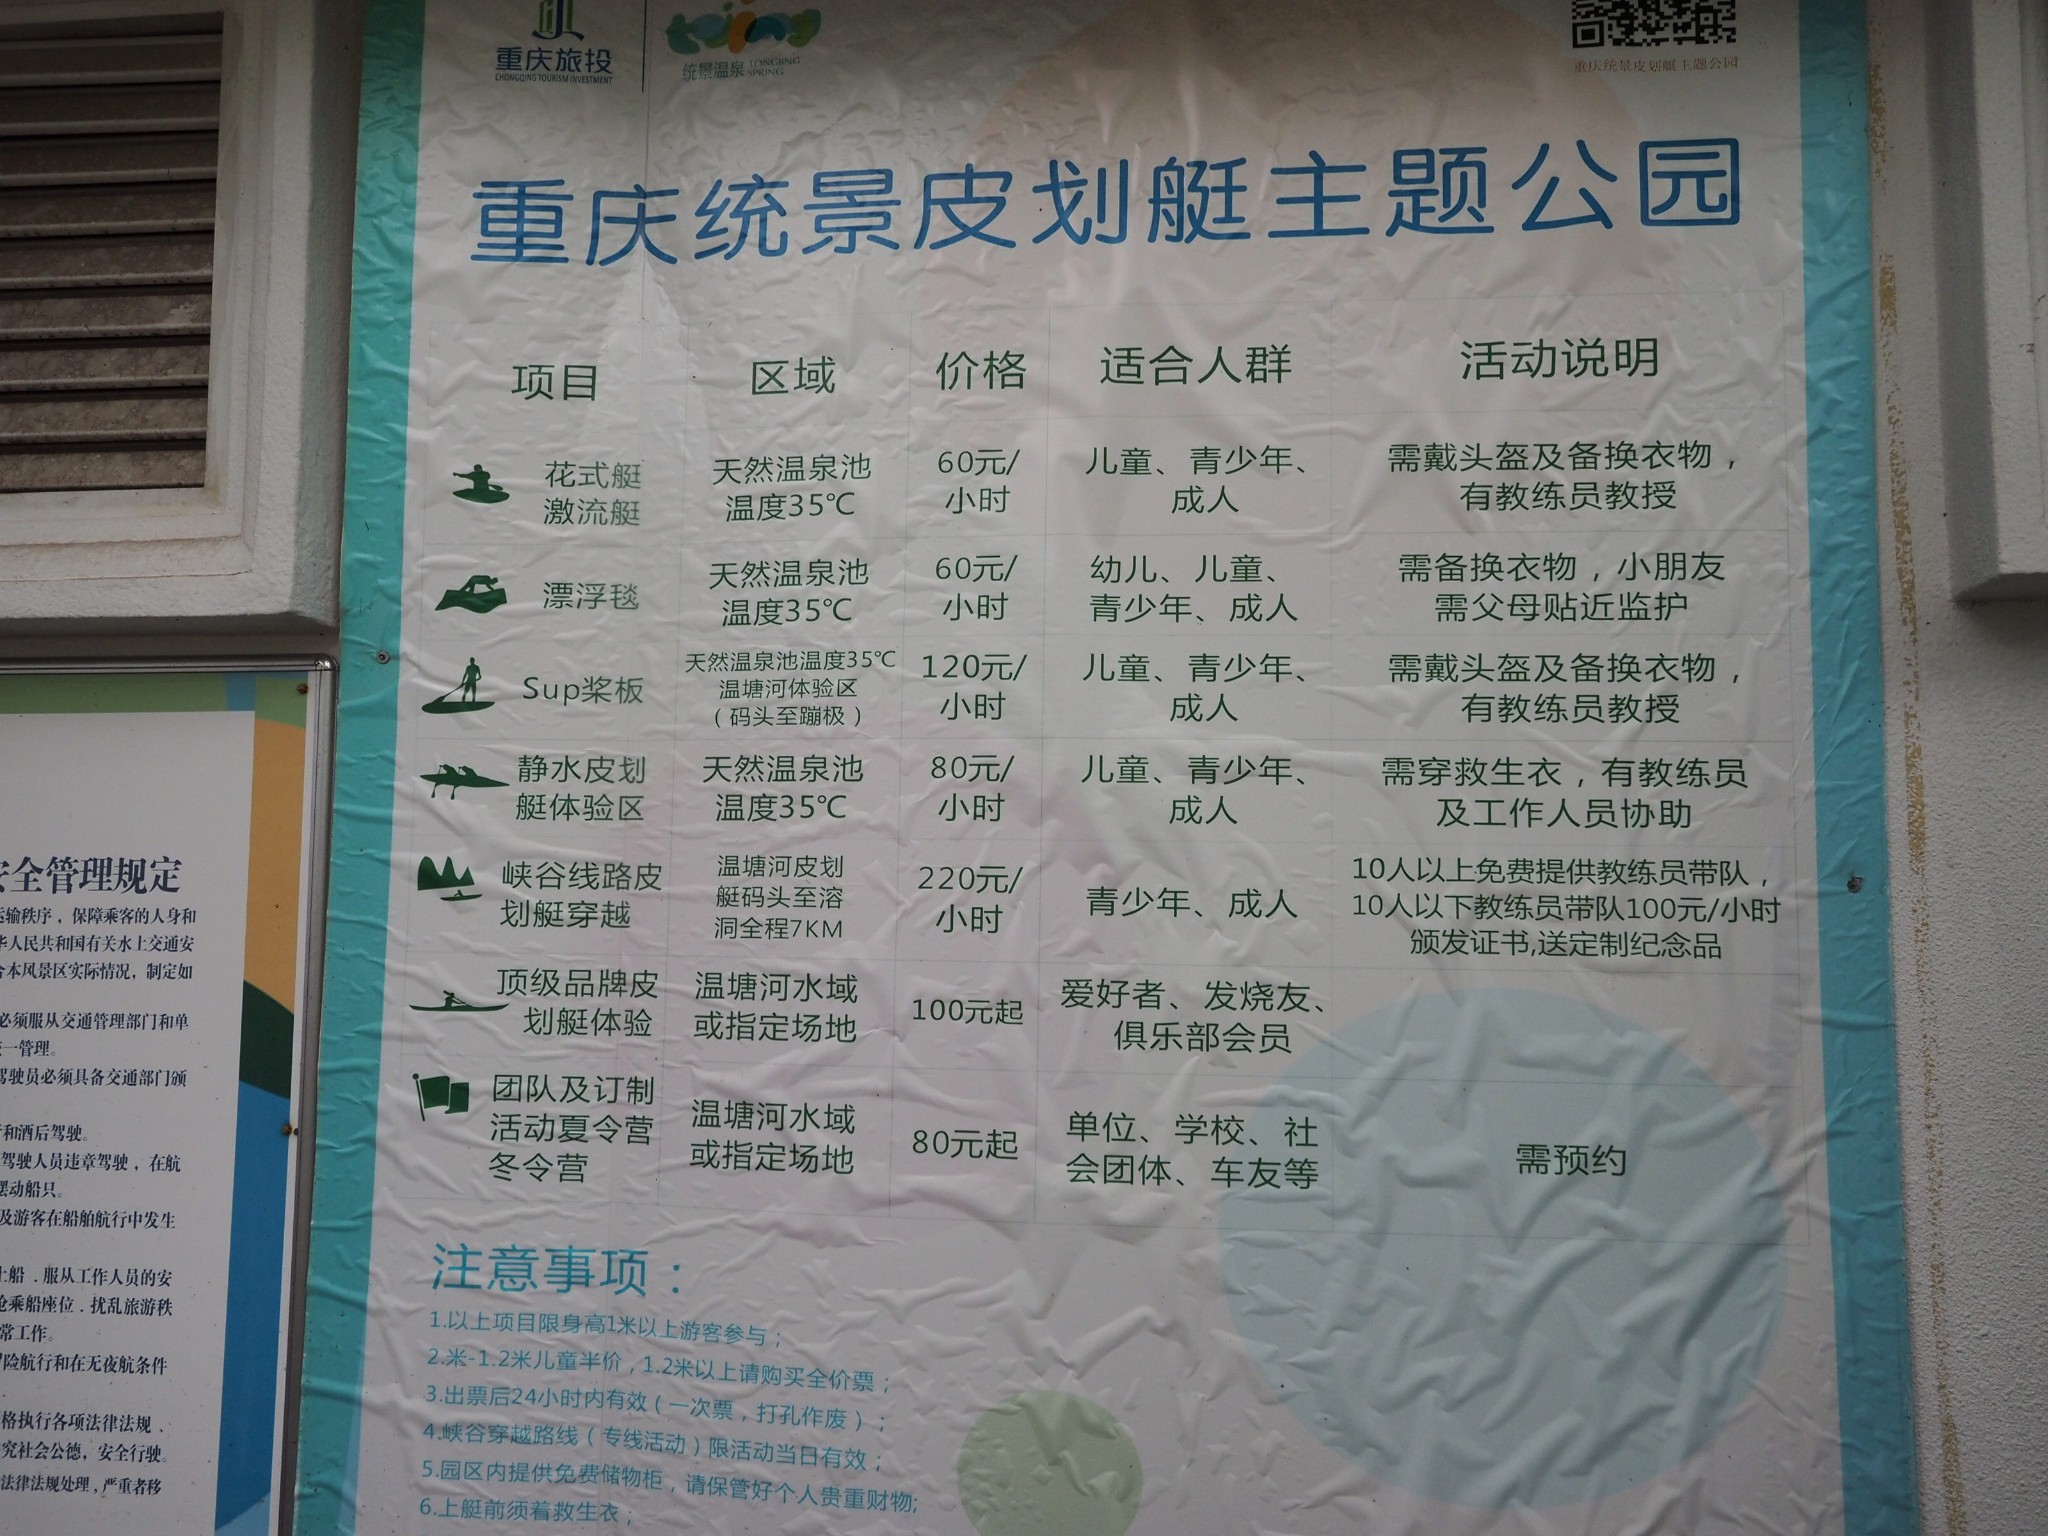 重庆旅投
CHONGQING TOURISM INVESTMENT
tojing
统景温泉 TONGJING
SPRING
重庆统景皮划艇主题公园
重庆统景皮划艇主题公园
项目 区域 价格 适合人群 活动说明
花式艇
激流艇
天然温泉池
温度35℃
60元/
小时
儿童、青少年、
成人
需戴头盔及备换衣物，
有教练员教授
漂浮毯
天然温泉池
温度35℃
60元/
小时
幼儿、儿童、
青少年、成人
需备换衣物，小朋友
需父母贴近监护
Sup桨板
天然温泉池温度35℃
温塘河体验区
（码头至蹦极）
120元/
小时
儿童、青少年、
成人
需戴头盔及备换衣物，
有教练员教授
静水皮划
艇体验区
天然温泉池
温度35℃
80元/
小时
儿童、青少年、
成人
需穿救生衣，有教练员
及工作人员协助
峡谷线路皮
划艇穿越
温塘河皮划
艇码头至溶
洞全程7KM
220元/
小时
青少年、成人
10人以上免费提供教练员带队，
10人以下教练员带队100元/小时
颁发证书,送定制纪念品
顶级品牌皮
划艇体验
温塘河水域
或指定场地
100元起
爱好者、发烧友、
俱乐部会员
团队及订制
活动夏令营
冬令营
温塘河水域
或指定场地
80元起
单位、学校、社
会团体、车友等
需预约
注意事项：
1.以上项目限身高1米以上游客参与；
2.米-1.2米儿童半价，1.2米以上请购买全价票；
3.出票后24小时内有效（一次票，打孔作废）；
4.峡谷穿越路线（专线活动）限活动当日有效；
5.园区内提供免费储物柜，请保管好个人贵重财物;
6.上艇前须着救生衣；
安全管理规定
运输秩序，保障乘客的人身和
华人民共和国有关水上交通安
合本风景区实际情况，制定如
必须服从交通管理部门和单
一管理。
驾驶员必须具备交通部门颁
和酒后驾驶。
驾驶人员违章驾驶，在航
摆动船只。
及游客在船舶航行中发生
上船．服从工作人员的安
抢乘船座位．扰乱旅游秩
常工作。
冒险航行和在无夜航条件
格执行各项法律法规、
究社会公德，安全行驶。
法律法规处理，严重者移